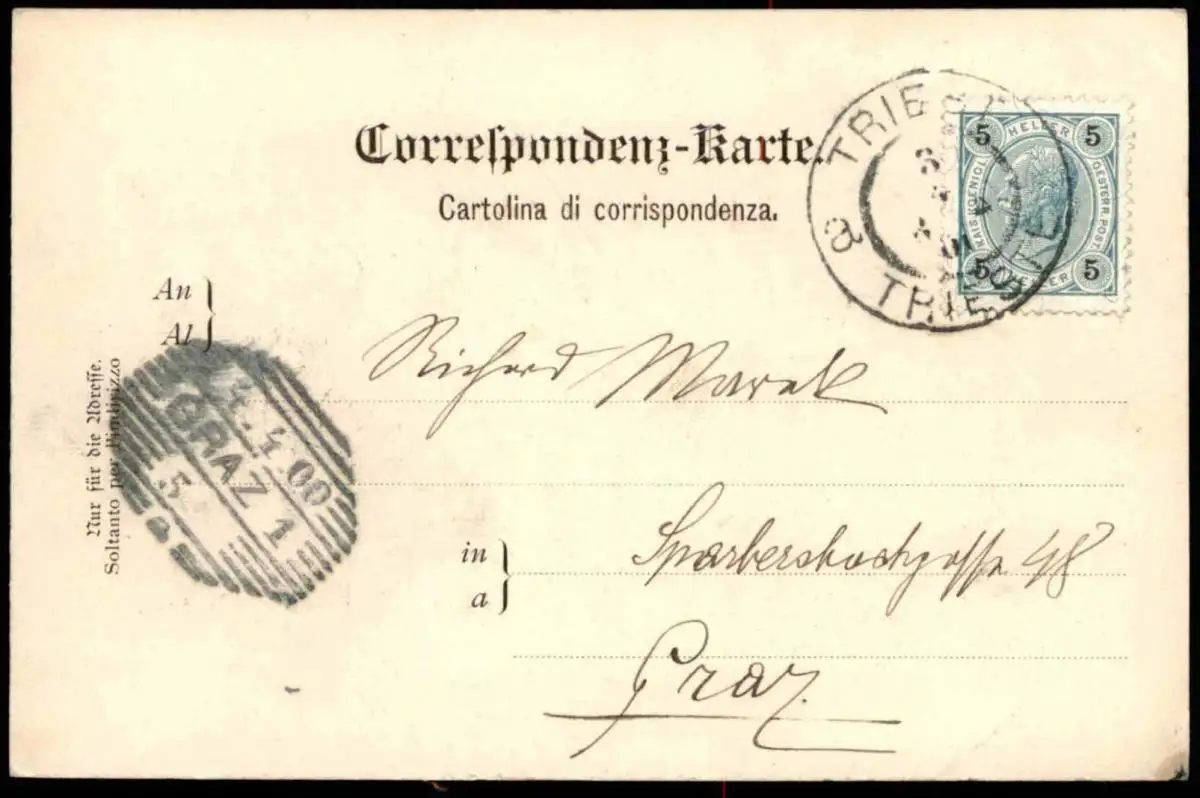 Correspondenz-Karte.
Cartolina di corrispondenza.
TRIEST
TRIESTE
5 HELLER 5
KAIS. KOENIGL. OESTERR. POST.
5 HELLER 5
An
Al
Richard Marek
Nur für die Adresse.
Soltanto per l'indirizzo
4. 4 00
GRAZ 1
5
in
a
Sparbersbachgasse 48
Graz